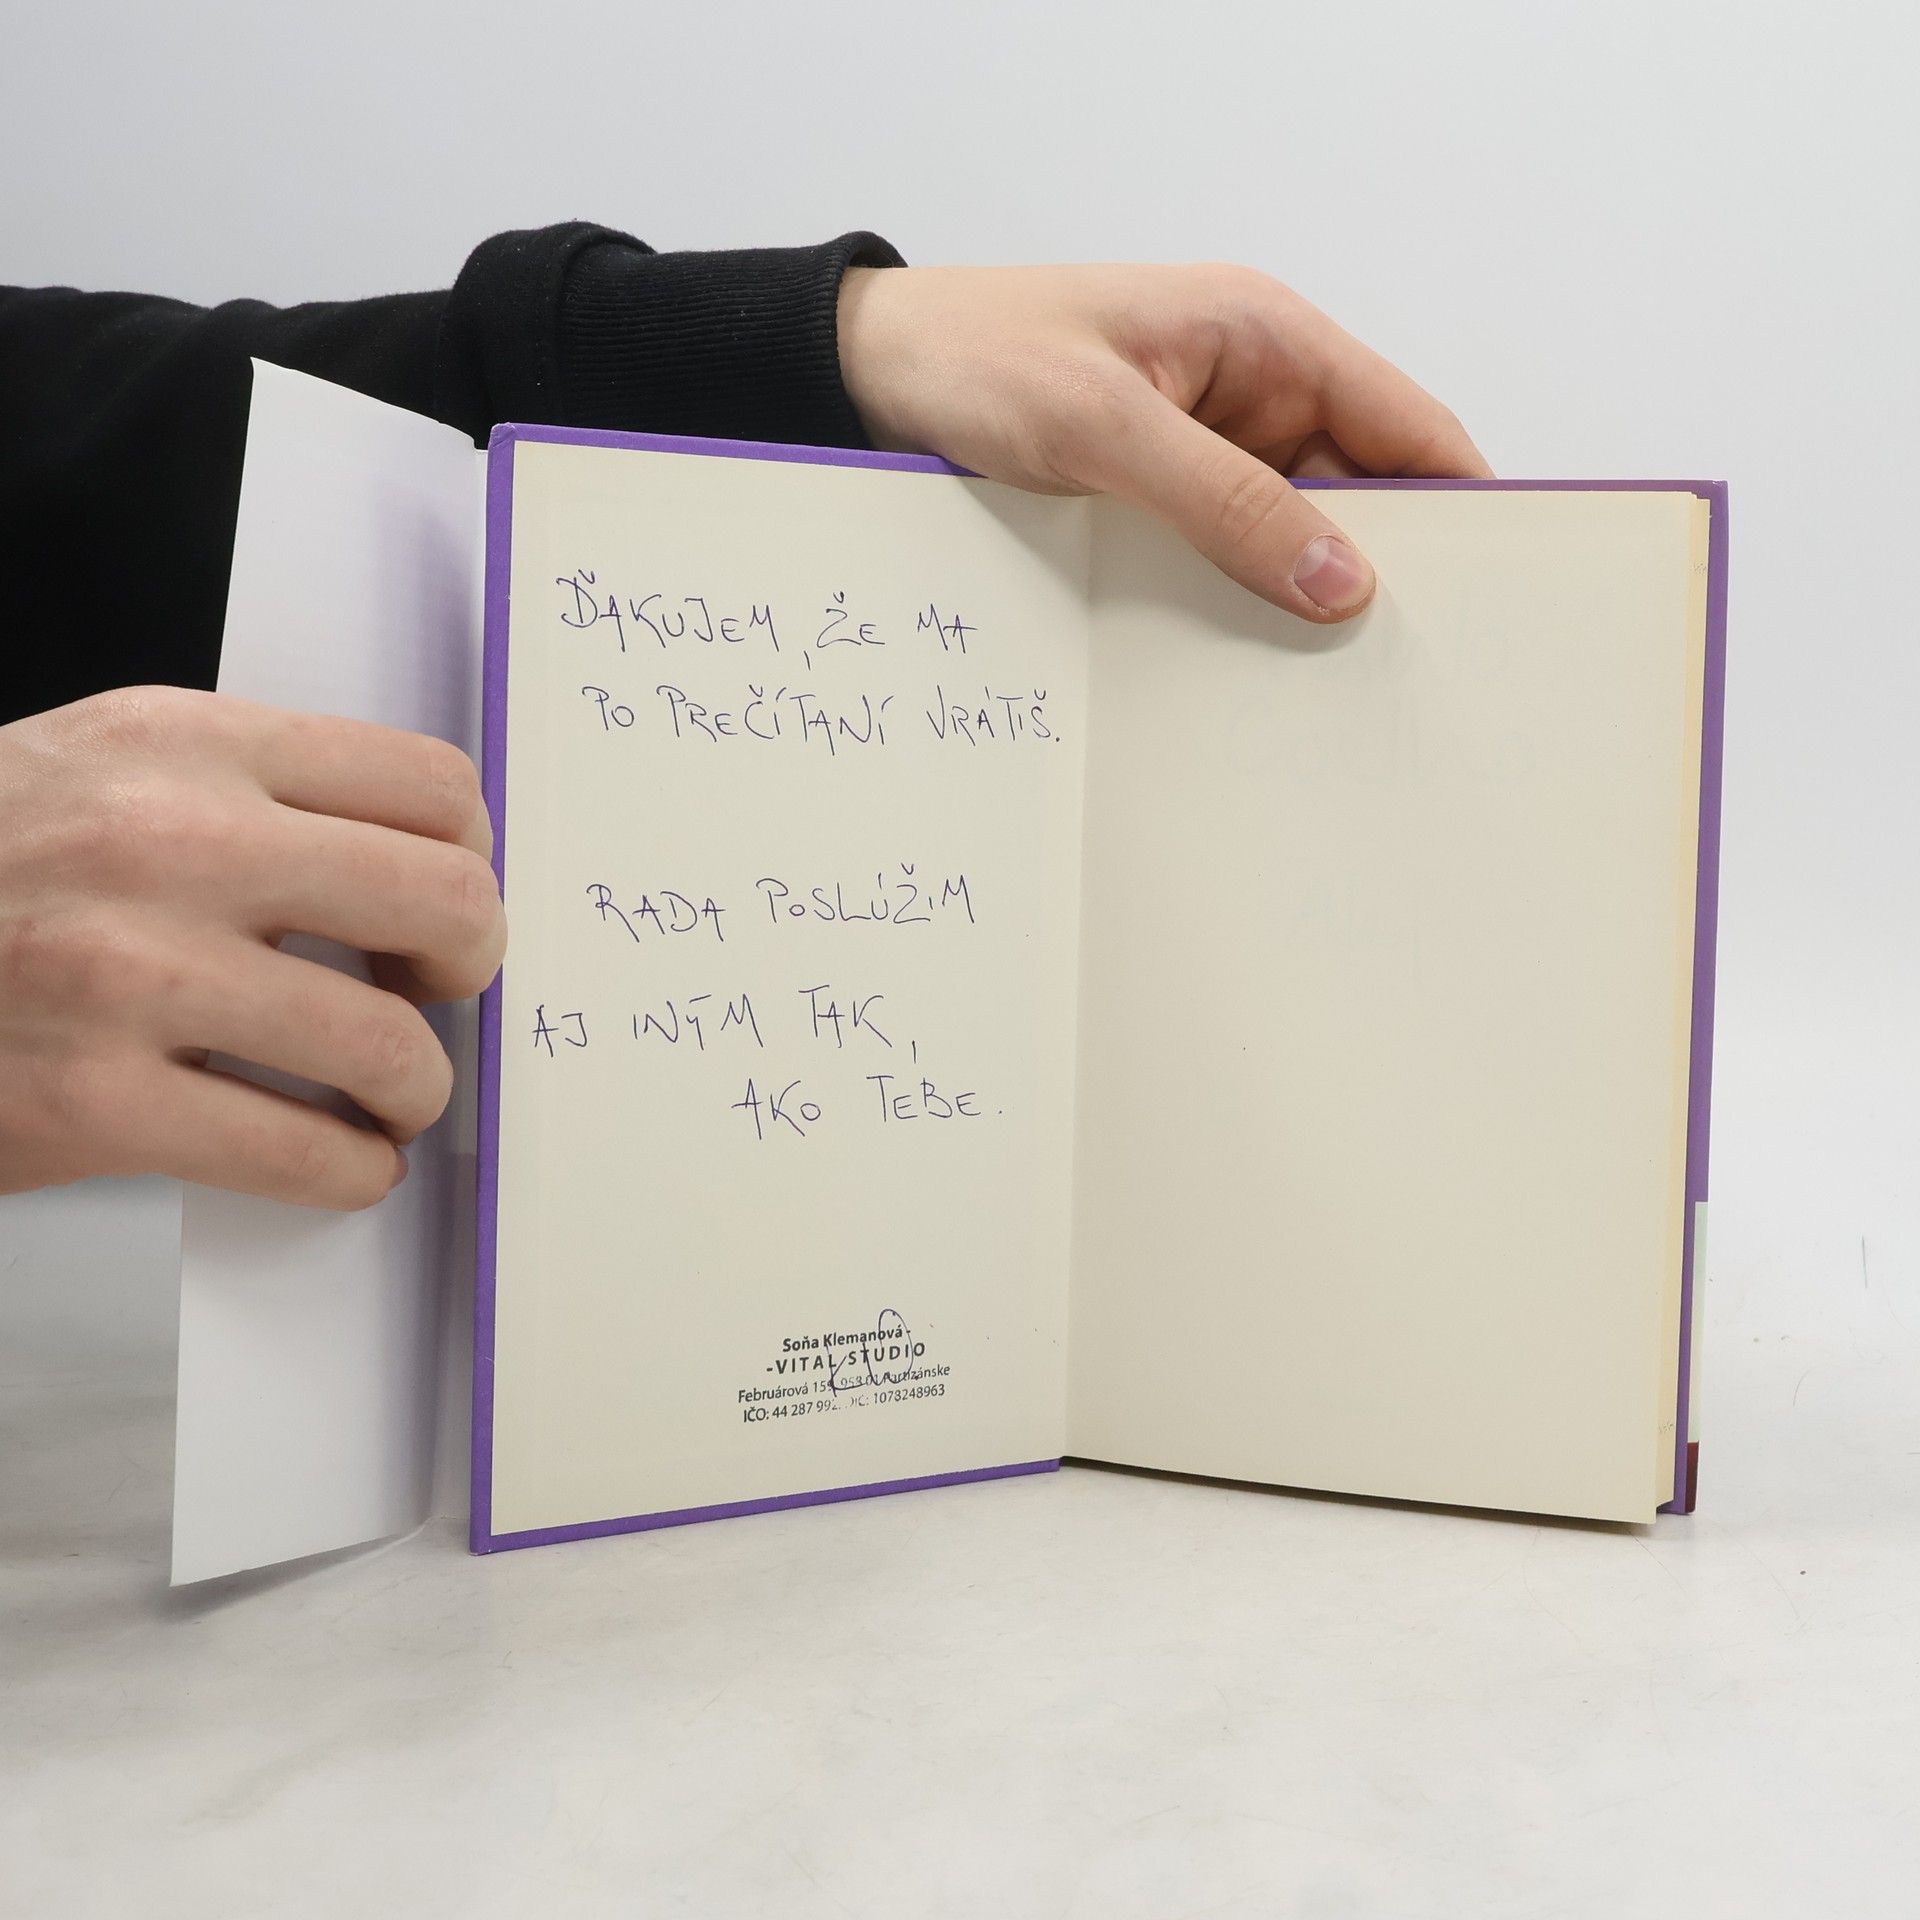 ĎAKUJEM, ŽE MA
PO PREČÍTANÍ VRÁTIŠ.
RADA POSLÚŽIM
AJ INÝM TAK,
AKO TEBE.
Soňa Klemanová
-VITAL STUDIO
Februárová 159, 958 01 Partizánske
IČO: 44 287 992, DIČ: 1078248963